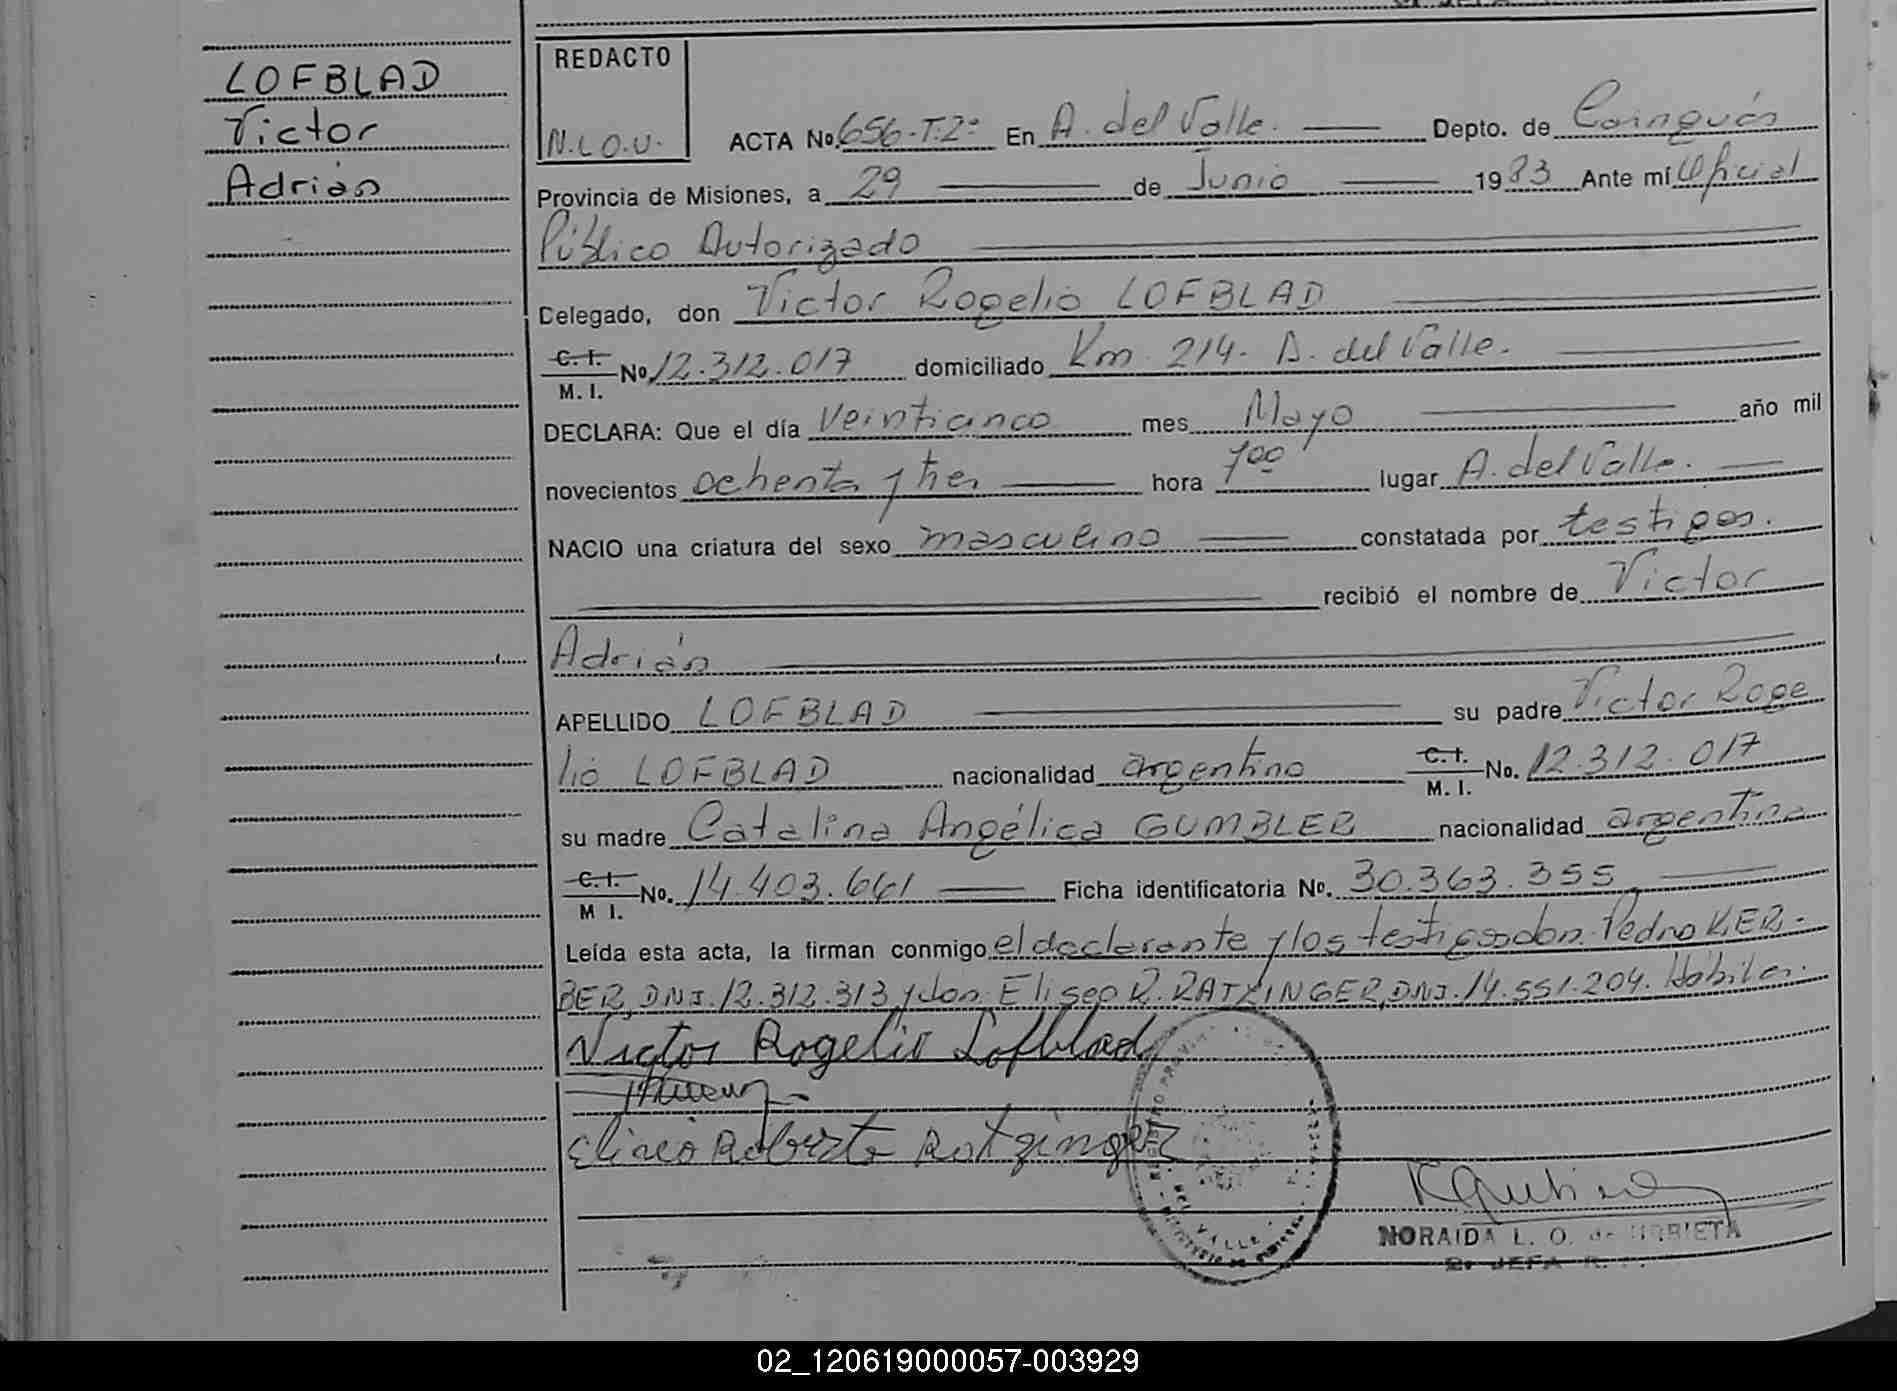 LOFBLAD
Victor
Adrián
REDACTO
N.L.O.U.
ACTA No. 656-T.2º En A. del Valle. Depto. de Cainguás
Provincia de Misiones, a 29 de Junio 1983 Ante mí Oficial
Público Autorizado
Delegado, don Victor Rogelio LOFBLAD
C. I. M. I. No 12.312.017 domiciliado Km 214. A. del Valle.
DECLARA: Que el día veinticinco mes Mayo año mil
novecientos ochenta y tres hora 7ºº lugar A. del Valle.
NACIO una criatura del sexo masculino constatada por testigos.
recibió el nombre de Victor
Adrián
APELLIDO LOFBLAD su padre Victor Roge
lio LOFBLAD nacionalidad argentino C. I. M. I. No. 12.312.017
su madre Catalina Angélica GUMBLER nacionalidad argentina
C. I. M I. No. 14.403.661 Ficha identificatoria No. 30.363.355
Leída esta acta, la firman conmigo el declarante y los testigos don Pedro KER-
BER, DNI. 12.312.313 y don Eliseo R. RATZINGER, DNI. 14.551.204. Hábiles.
Victor Rogelio Lofblad
Eliseo Roberto Ratzinger
DEL VALLE
NORAIDA L. O. de URRIETA
2a JEFA R.
02_120619000057-003929